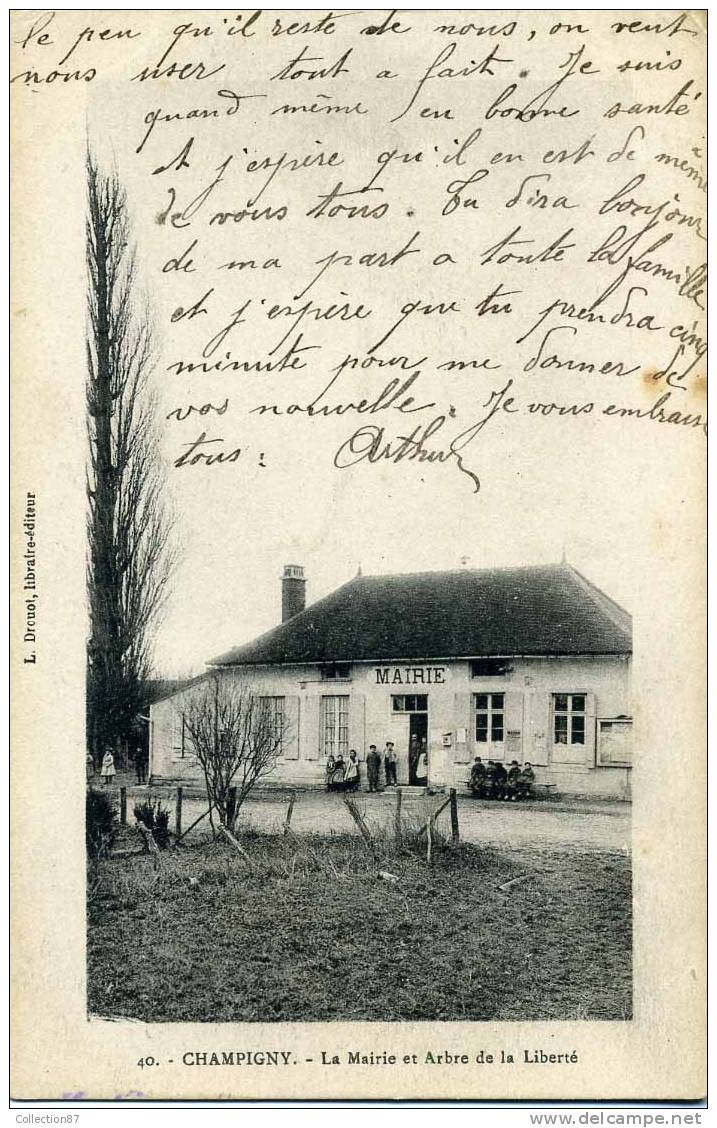 le peu qu'il reste de nous, on veut
nous user tout a fait. Je suis
quand même en bonne santé
et j'espère qu'il en est de même
de vous tous. Tu dira bonjour
de ma part a toute la famille
et j'espère que tu prendra cinq
minute pour me donner de
vos nouvelle. Je vous embrasse
tous : Arthur
L. Drouot, libraire-éditeur
MAIRIE
40. - CHAMPIGNY. - La Mairie et Arbre de la Liberté
Collection87
www.delcampe.net